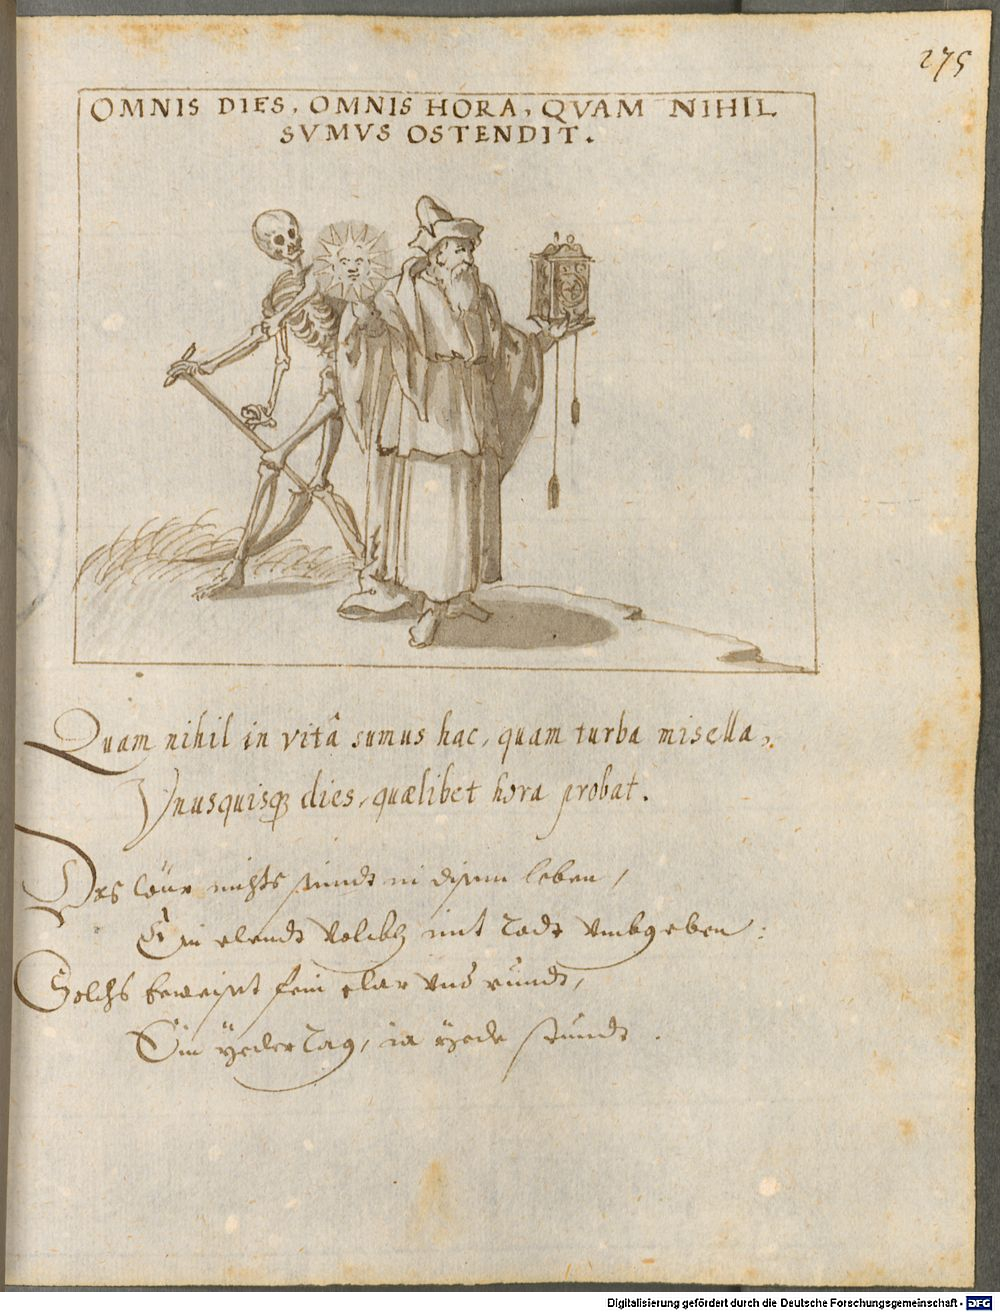 275
OMNIS DIES, OMNIS HORA, QVAM NIHIL
SVMVS OSTENDIT.
Quam nihil in vitâ sumus hac, quam turba misella,
Vnusquisqꝫ dies, quælibet hora probat.
Das wür nichts seindt in disem leben,
Ein elendt volckh mit Todt vmbgeben:
Solchs beweist fein clar vnd rundt,
Ein yeder Tag, ia yede stundt.
Digitalisierung gefördert durch die Deutsche Forschungsgemeinschaft - DFG